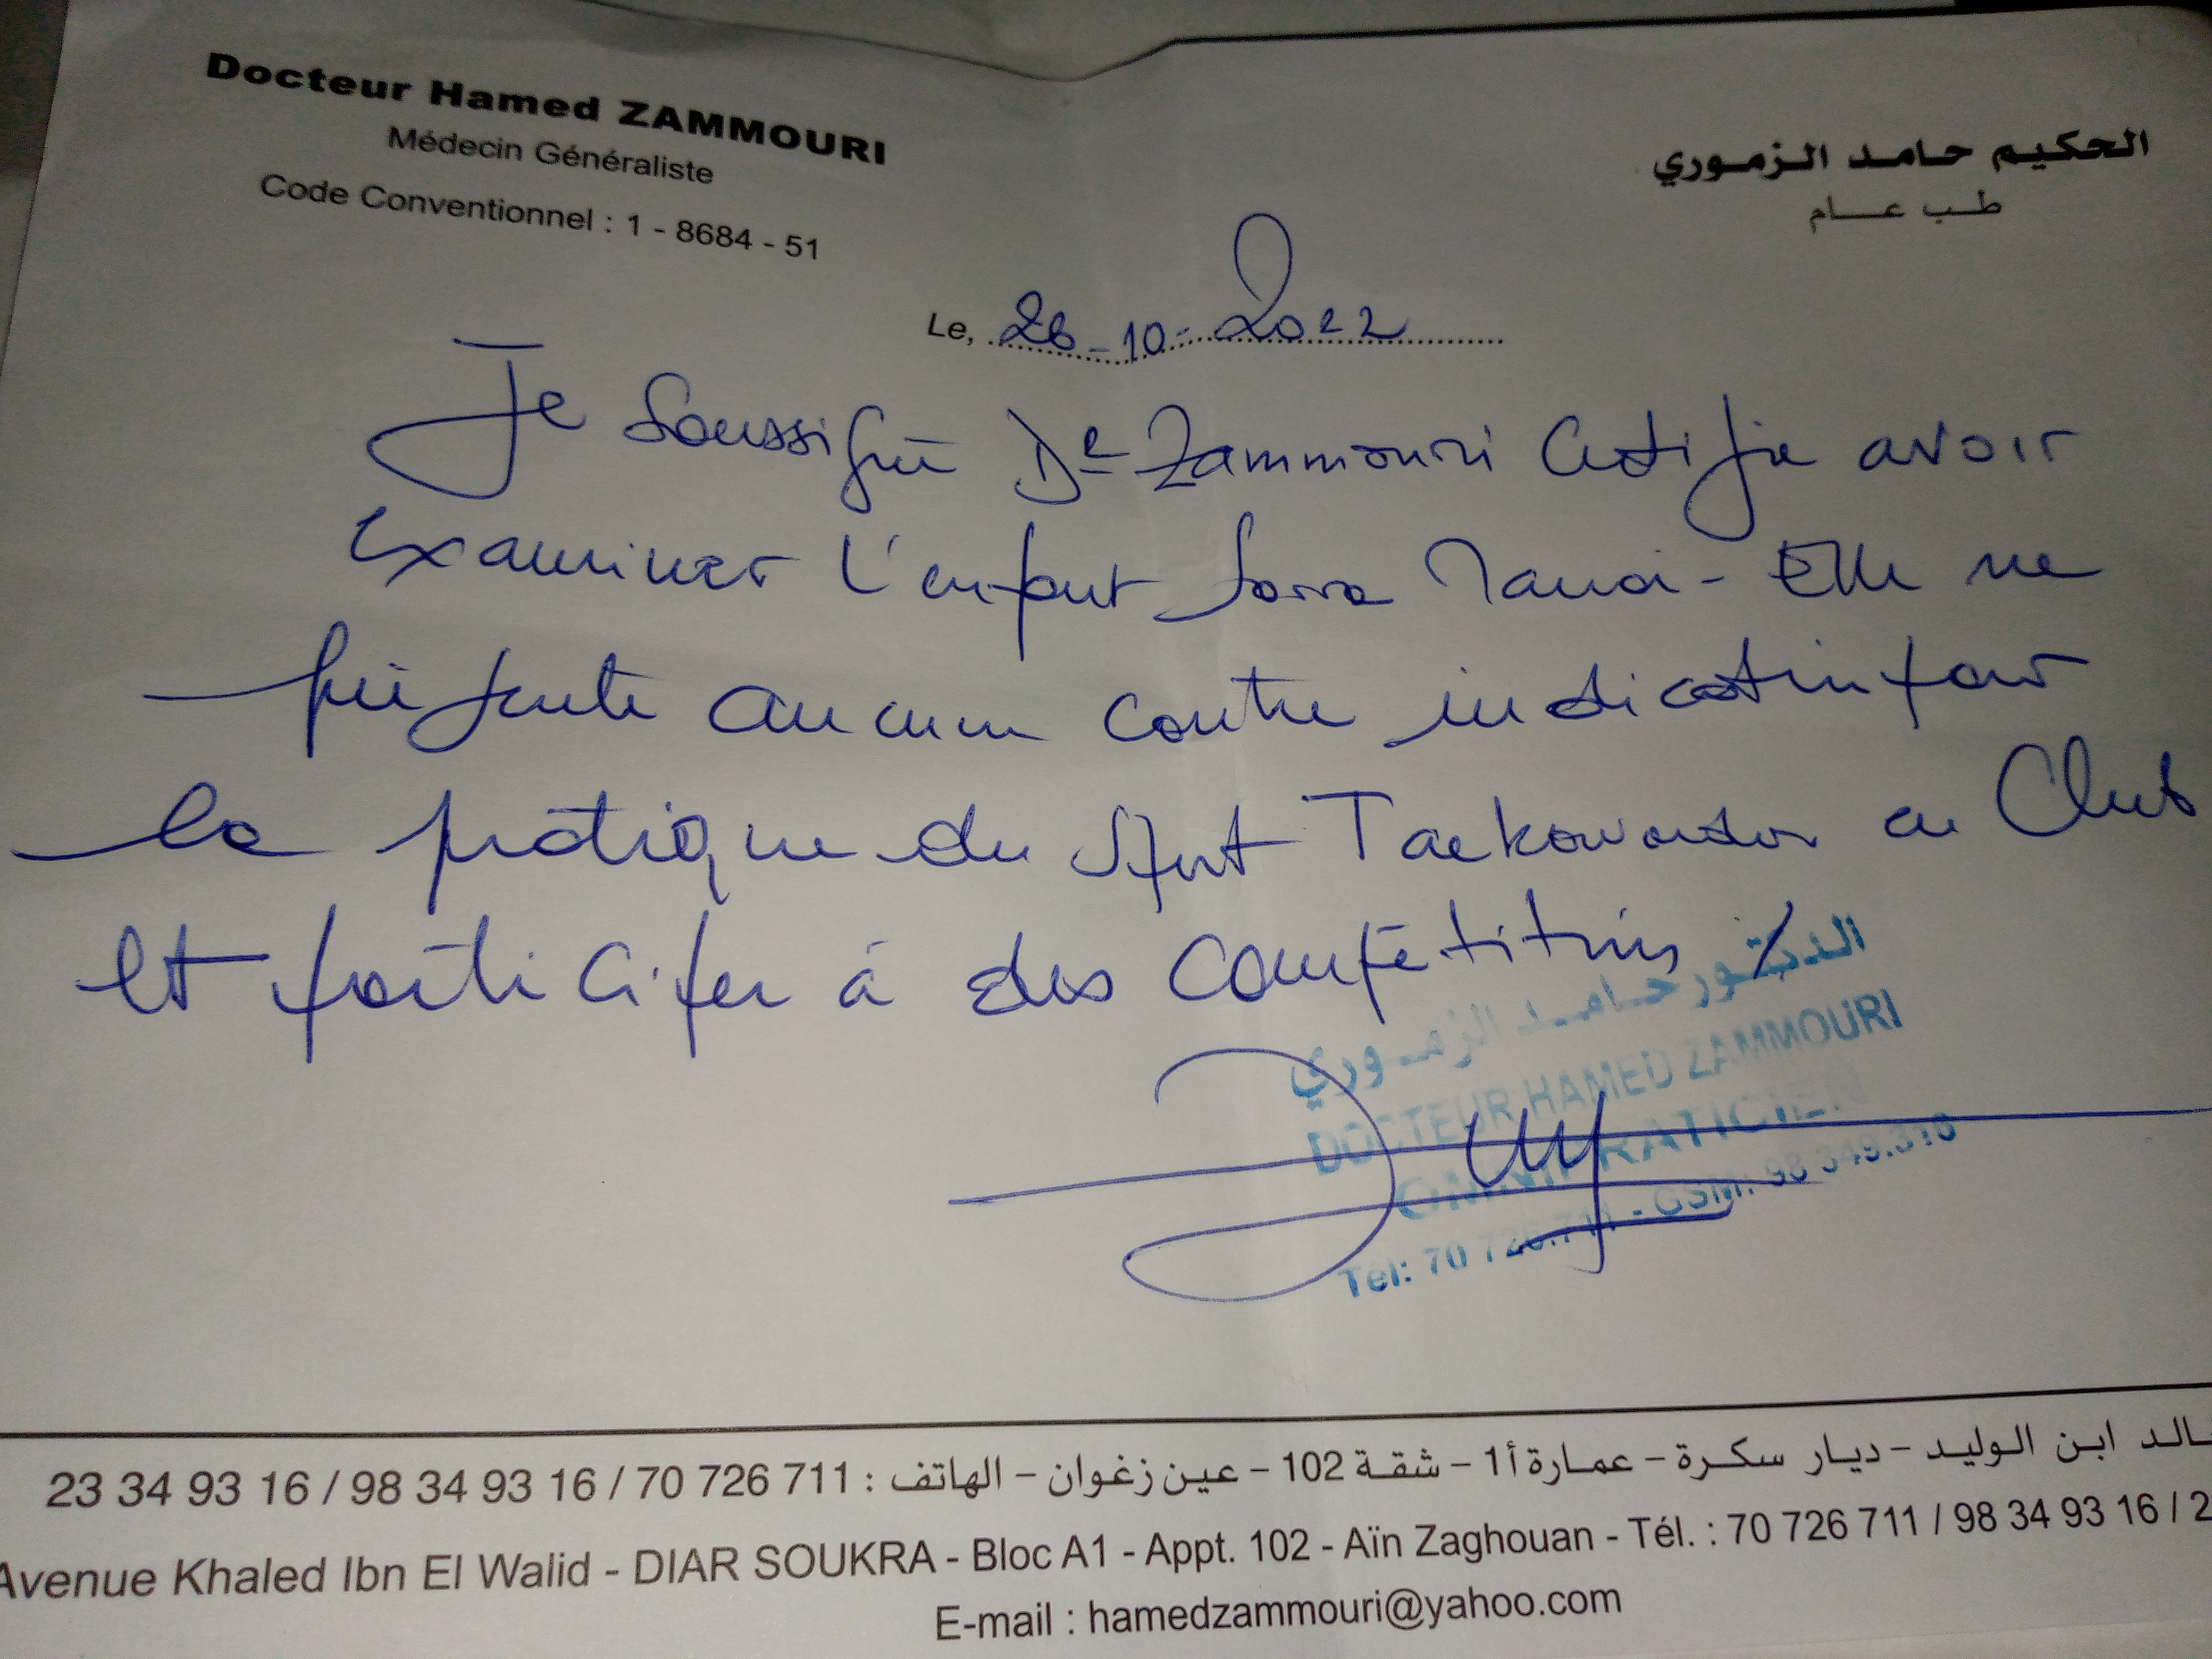 Docteur Hamed ZAMMOURI
Médecin Généraliste
Code Conventionnel : 1 - 8684 - 51
الحكيم حامد الزموري
طب عام
Le, 26-10-2022
Je soussigné Dr Zammouri Certifie avoir
examiner l'enfant Sarra - Elle ne
présente aucun contre indication pour
la pratique du sport Taekowondo en Club
et participer à des compétitions
الدكتور حامد الزموري
DOCTEUR HAMED ZAMMOURI
OMNIPRATICIEN
Tel: 70 726.711 - GSM: 98 349.316
خالد ابن الوليد - ديار سكرة - عمارة أ1 - شقة 102 - عين زغوان - الهاتف : 23 34 93 16 / 98 34 93 16 / 70 726 711
Avenue Khaled Ibn El Walid - DIAR SOUKRA - Bloc A1 - Appt. 102 - Aïn Zaghouan - Tél. : 70 726 711 / 98 34 93 16 / 2
E-mail : hamedzammouri@yahoo.com